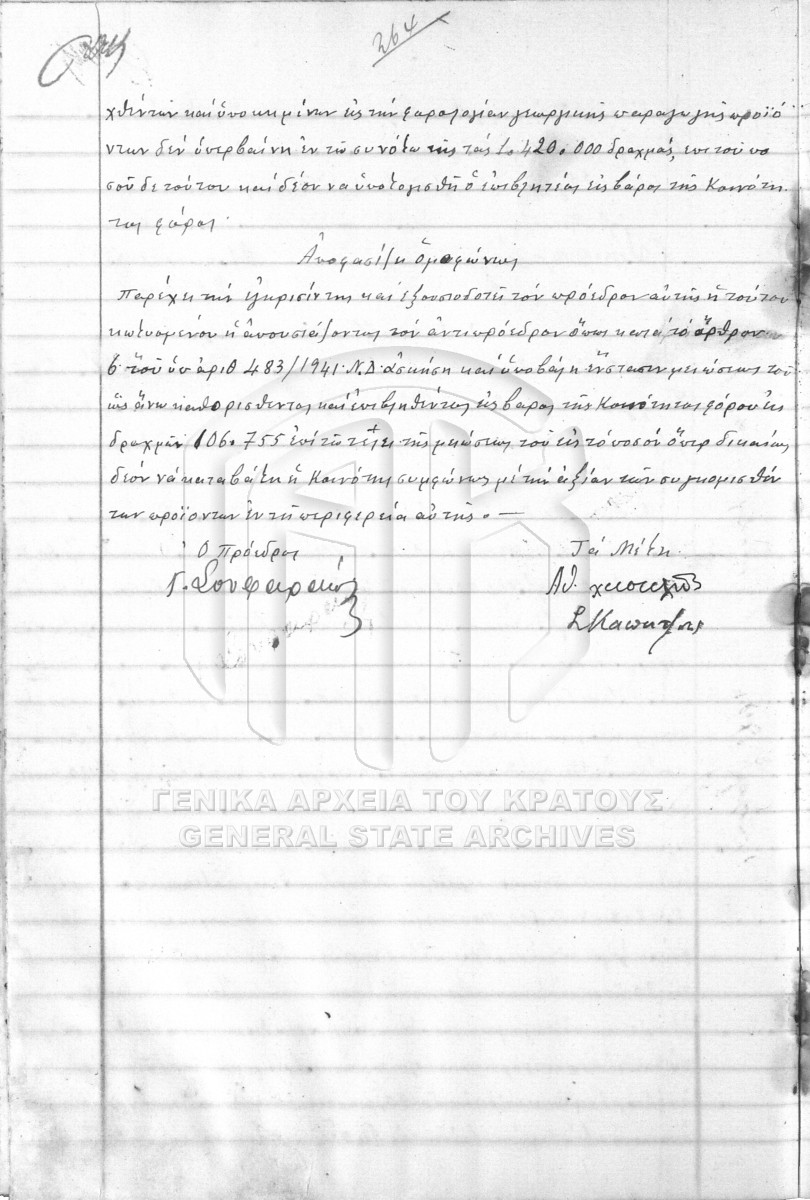 264
χθέντων καὶ ὑποκειμένων εἰς τὴν φορολογίαν γεωργικῆς παραγωγῆς προϊό
ντων δὲν ὑπερβαίνη ἐν τῶ συνόλω της τὰς 1.420.000 δραχμάς, ἐπὶ τοῦ πο
σοῦ δὲ τούτου καὶ δέον νὰ ὑπολογισθῆ ὁ ἐπιβλητέος εἰς βάρος τῆς Κοινότη
τος φόρος.
Ἀποφασίζει ὁμοφώνως
Παρέχει τὴν ἔγκρισίν της καὶ ἐξουσιοδοτεῖ τὸν πρόεδρον αὐτῆς ἢ τούτου
κωλυομένου ἢ ἀπουσιάζοντος τὸν ἀντιπρόεδρον ὅπως κατὰ τὸ ἄρθρον
6 τοῦ ὑπ' ἀριθ 483/1941 Ν.Δ. ἀσκήση καὶ ὑποβάλη ἔνστασιν μειώσεως τοῦ
ὡς ἄνω καθορισθέντος καὶ ἐπιβληθέντος εἰς βάρος τῆς Κοινότητος φόρου ἐκ
δραχμῶν 106.755 ἐπὶ τῶ τέλει τῆς μειώσεως τοῦ εἰς τὸ ποσὸν ὅπερ δικαίως
δέον νὰ καταβάλη ἡ Κοινότης συμφώνως μὲ τὴν ἀξίαν τῶν συγκομισθέν
των προϊόντων ἐν τῆ περιφερεία αὐτῆς. —
Ὁ Πρόεδρος Τὰ Μέλη
Γ. Σουφαρ Αθ.
ΓΕΝΙΚΑ ΑΡΧΕΙΑ ΤΟΥ ΚΡΑΤΟΥΣ
GENERAL STATE ARCHIVES